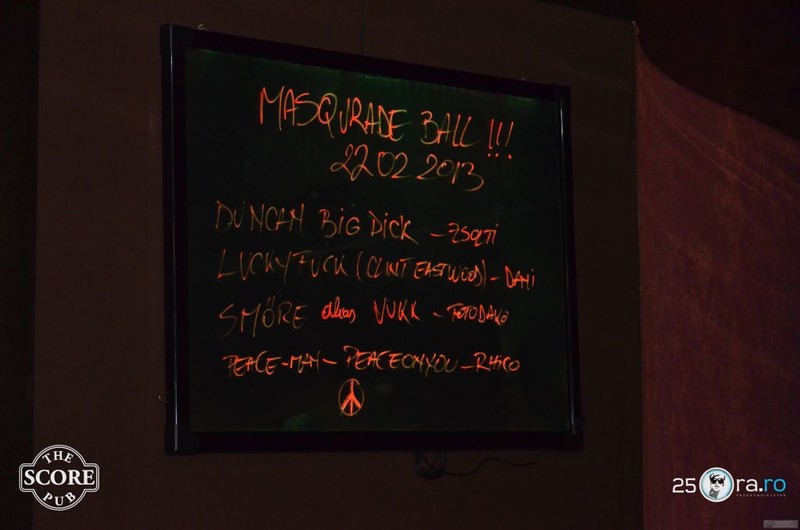 MASQURADE BALL !!!
22 02 2013
DUNCAN BIG DICK - ZSOLTI
LUCKYFUCK (CLINT EASTWOOD) - DANI
SMÖRE alias VUKK - FOTODAKO
PEACE-MAN - PEACEONYOU - RHICO
THE
SCORE
PUB
25 ra.ro